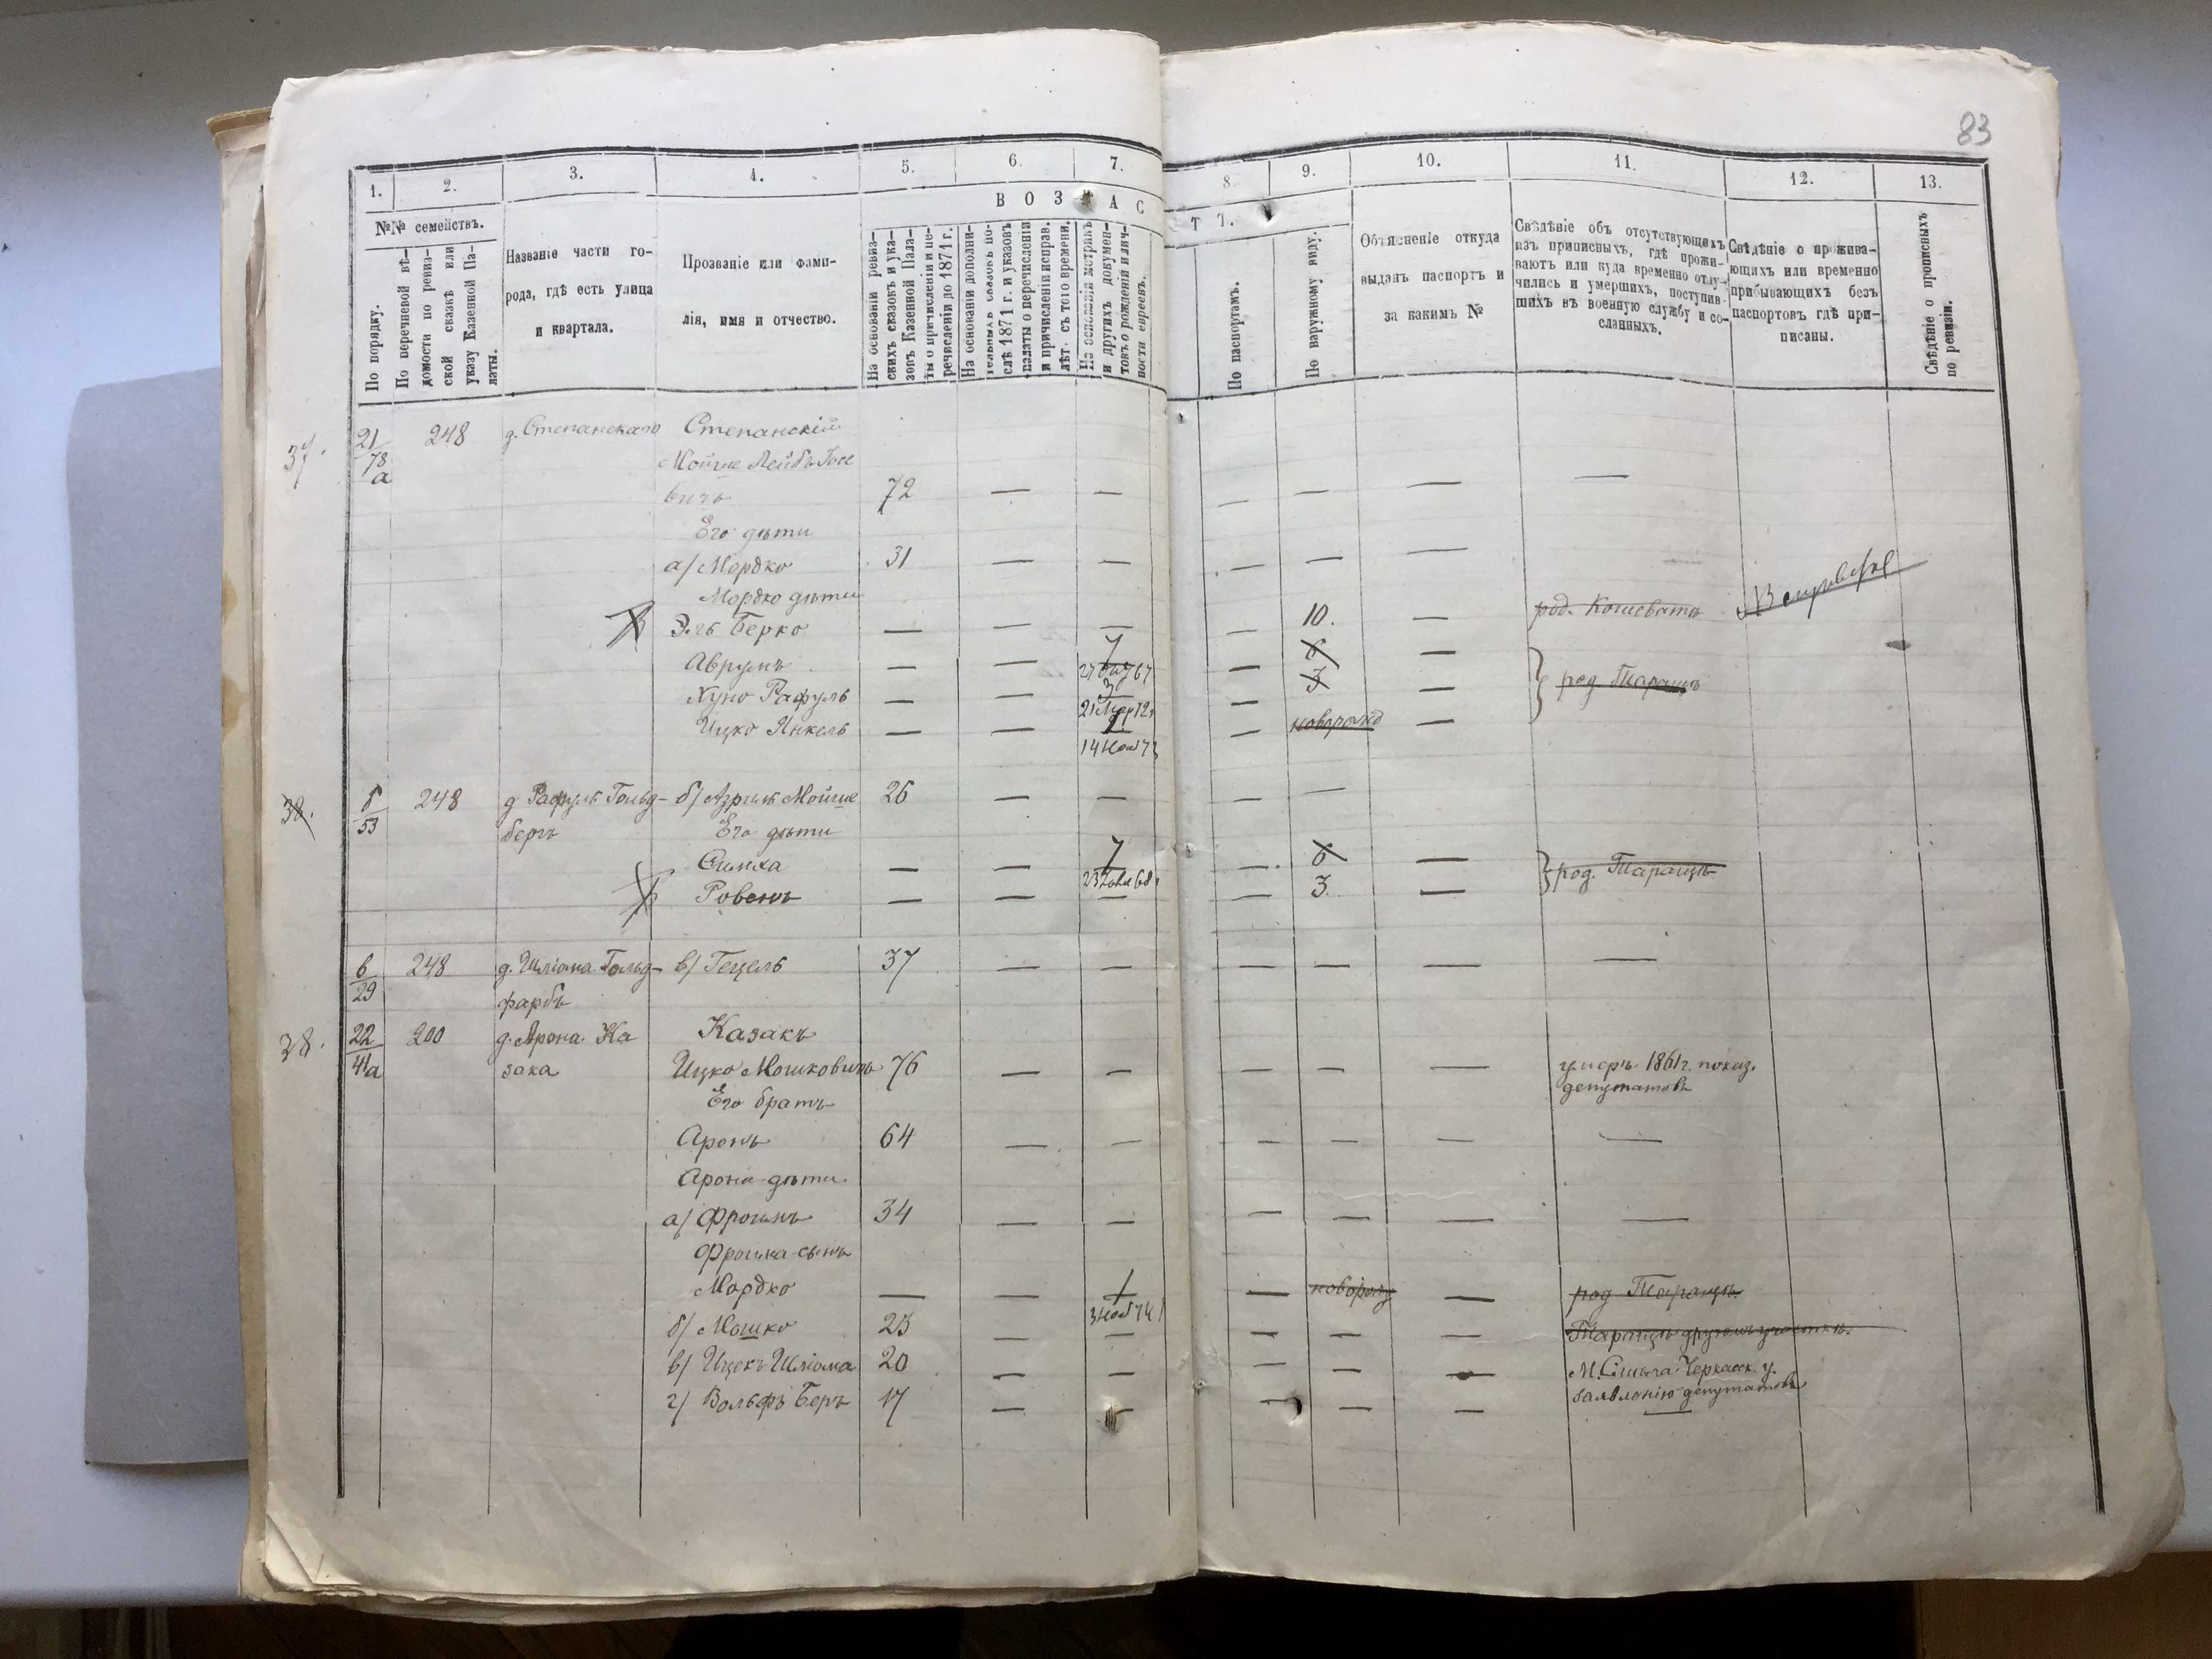 83
1. 2. 3. 4. 5. 6. 7. 8. 9. 10. 11. 12. 13.
ВОЗРАСТЪ.
№№ семействъ.
По порядку.
По перечневой вѣ-
домости по ревиз-
ской сказкѣ или
указу Казенной Па-
латы.
Названіе части го-
рода, гдѣ есть улица
и квартала.
Прозваніе или фами-
лія, имя и отчество.
На основаніи ревиз-
скихъ сказокъ и ука-
зовъ Казенной Пала-
ты о причисленіи и пе-
речисленіи до 1871 г.
На основаніи дополни-
тельныхъ сказокъ по-
слѣ 1871 г. и указовъ
палаты о перечисленіи
и причисленіи исправ.
лѣт. съ того времени.
На основаніи метрикъ
и другихъ докумен-
товъ о рожденіи и лич-
ности евреевъ.
По паспортамъ.
По наружному виду.
Объясненіе откуда
выданъ паспортъ и
за какимъ №
Свѣдѣніе объ отсутствующихъ
изъ приписныхъ, гдѣ прожи-
ваютъ или куда временно отлу-
чились и умершихъ, поступив-
шихъ въ военную службу и со-
сланныхъ.
Свѣдѣніе о прожива-
ющихъ или временно
прибывающихъ безъ
паспортовъ гдѣ при-
писаны.
Свѣдѣніе о прописныхъ
по ревизіи.
37. 21/78 а 248 д. Степанскаго Степанскій
Мойше Лейбъ
вичъ 72 — — — — — —
Его дѣти
а/ Мордко 31 — — — — —
Мордко дѣти
Берко — — — — 10. — род. Кошеватъ
Аврумъ — — 7 — 6 —
Хуно Рафуль — — 3 — 3 — род. Таращѣ
Ицко Янкель — — 1 — новорожд —
14 Ноя 73
38. б/53 248 д Рафуля Гольд- б/ Азриль Мойше 26 — — — —
бергъ Его дѣти
Симха — — 7 — 6 — род. Таращѣ
Ровенъ — — — — 3. —
в/29 248 д. Шліома Гольд- в/ Гецель 37 — — — — — —
фарбъ
38. 22/41а 200 д. Арона Ка Казакъ
зака Ицко Мошковичъ 76 — — — — — умеръ 1861г. показ.
Его братъ депутатовъ
Аронъ 64 — — — — — —
Арона дѣти
а/ Фроимъ 34 — — — — — —
Фроима сынъ
Мордко — — 1 — новорож — род Таращѣ
3 Ноя 74
б/ Мошко 23 — — — — — Таращѣ другомъ участкѣ.
в/ Ицекъ Шліома 20 — — — — — М. Смѣла Черкасск. у.
г/ Вольфъ Беръ 17 — — — — — заявленію депутатовъ